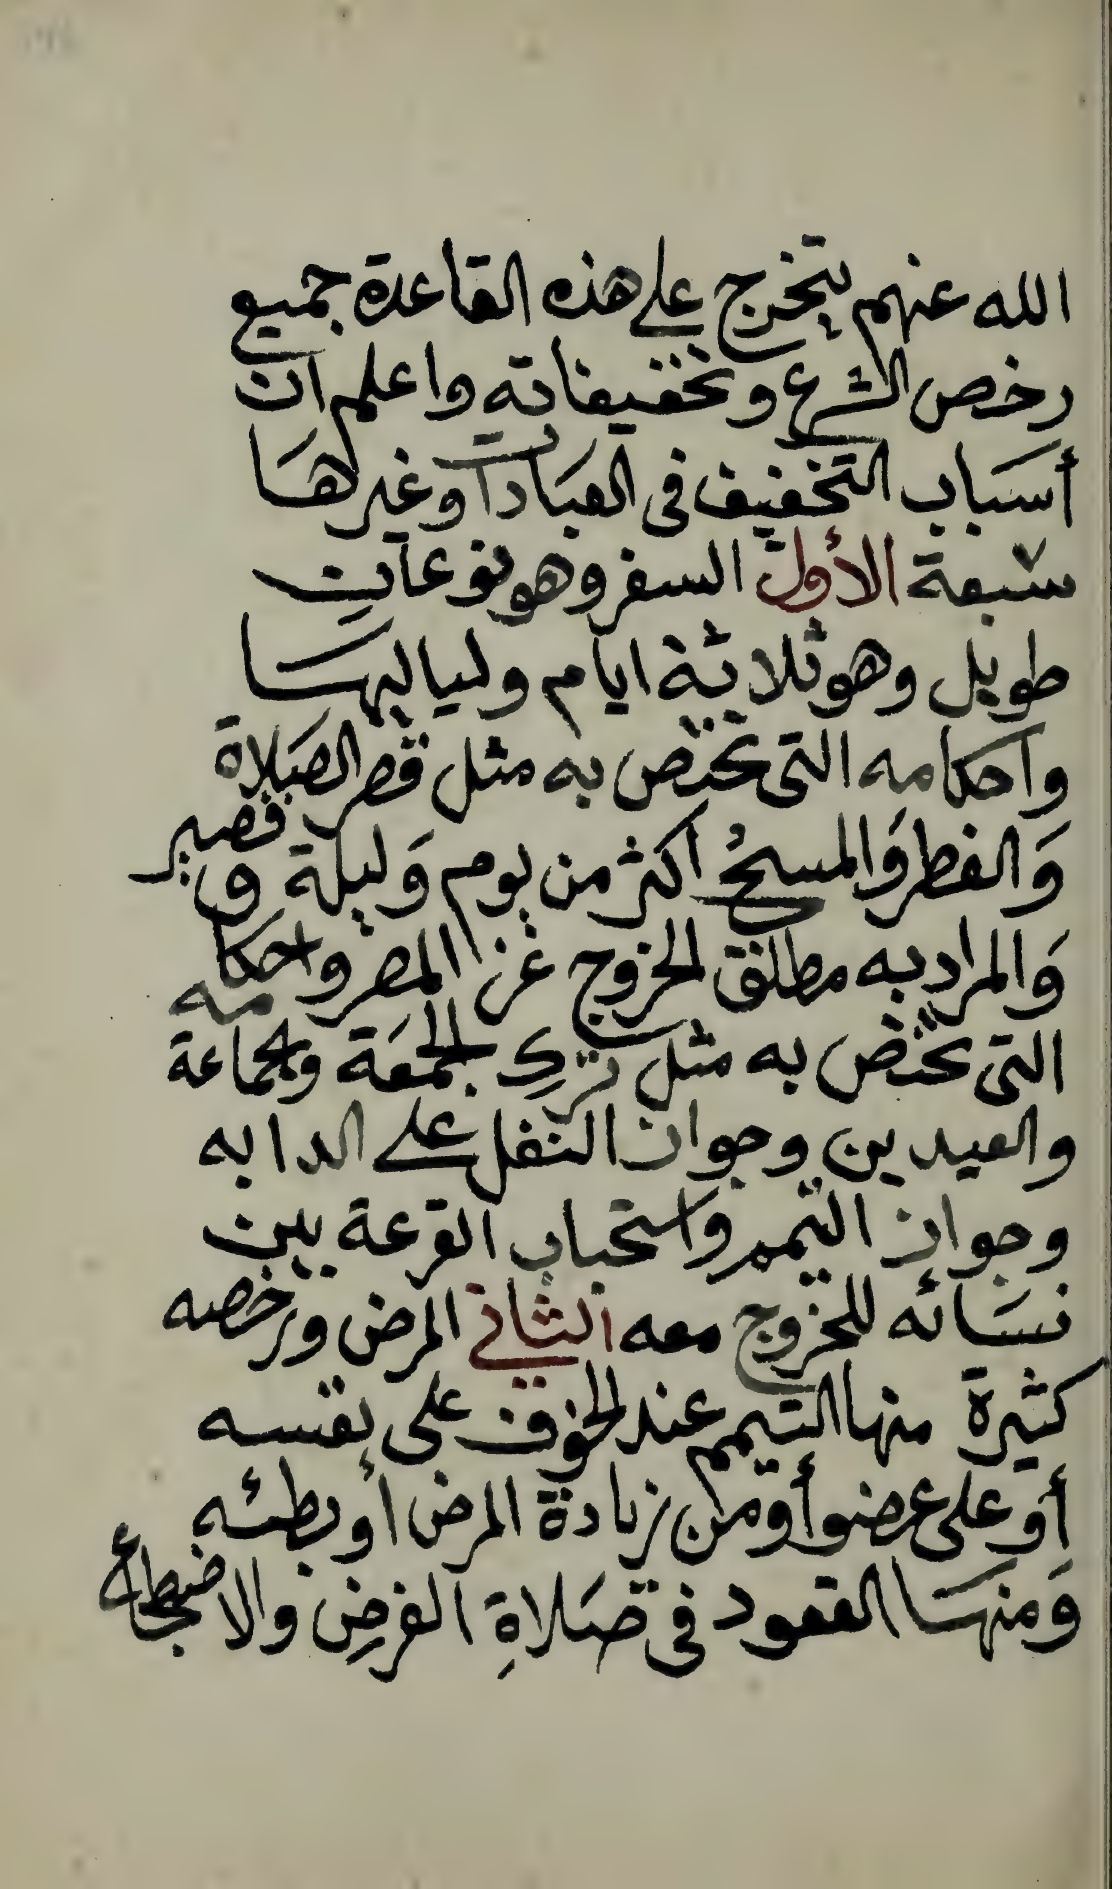 الله عنهم يتخرج على هذه القاعدة جميع
رخص الشرع وتخفيفاته واعلم ان
أسباب التخفيف فى العبادات وغيرها
سبعة الأول السفر وهو نوعان
طويل وهو ثلاثة ايام ولياليها
واحكامه التى تختص به مثل قصر الصلاة
وَالفطر وَالمسح اكثر من يوم وَليلة وقصير
وَالمراد به مطلق الخروج عن المصر واحكامه
التى تختص به مثل ترك الجمعة والجماعة
والعيدين وجواز النفل على الدابه
وجواز التيمم واستحباب القرعة بين
نسائه للخروج معه الثانى المرض ورخصه
كثيرة منها التيمم عند الخوف على نفسه
أو على عضو أو من زيادة المرض أو بطئه
وَمنها القعود فى صَلاةِ الفرض والاضطجاع